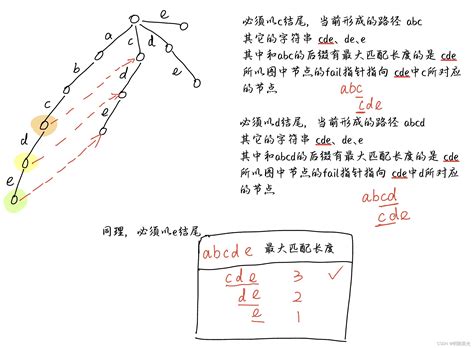 必须以c结尾，当前形成的路径 abc
其它的字符串 cde、de、e
其中和abc的后缀有最大匹配长度的是 cde
所以图中节点的fail指针指向 cde中c所对应
的节点
abc
cde
必须以d结尾，当前形成的路径 abcd
其它的字符串 cde、de、e
其中和abcd的后缀有最大匹配长度的是 cde
所以图中节点的fail指针指向 cde中d所对应
的节点
abcd
cde
同理，必须以e结尾
abcde 最大匹配长度
cde 3 ✓
de 2
e 1
a c d e
b d e
c e
d
e